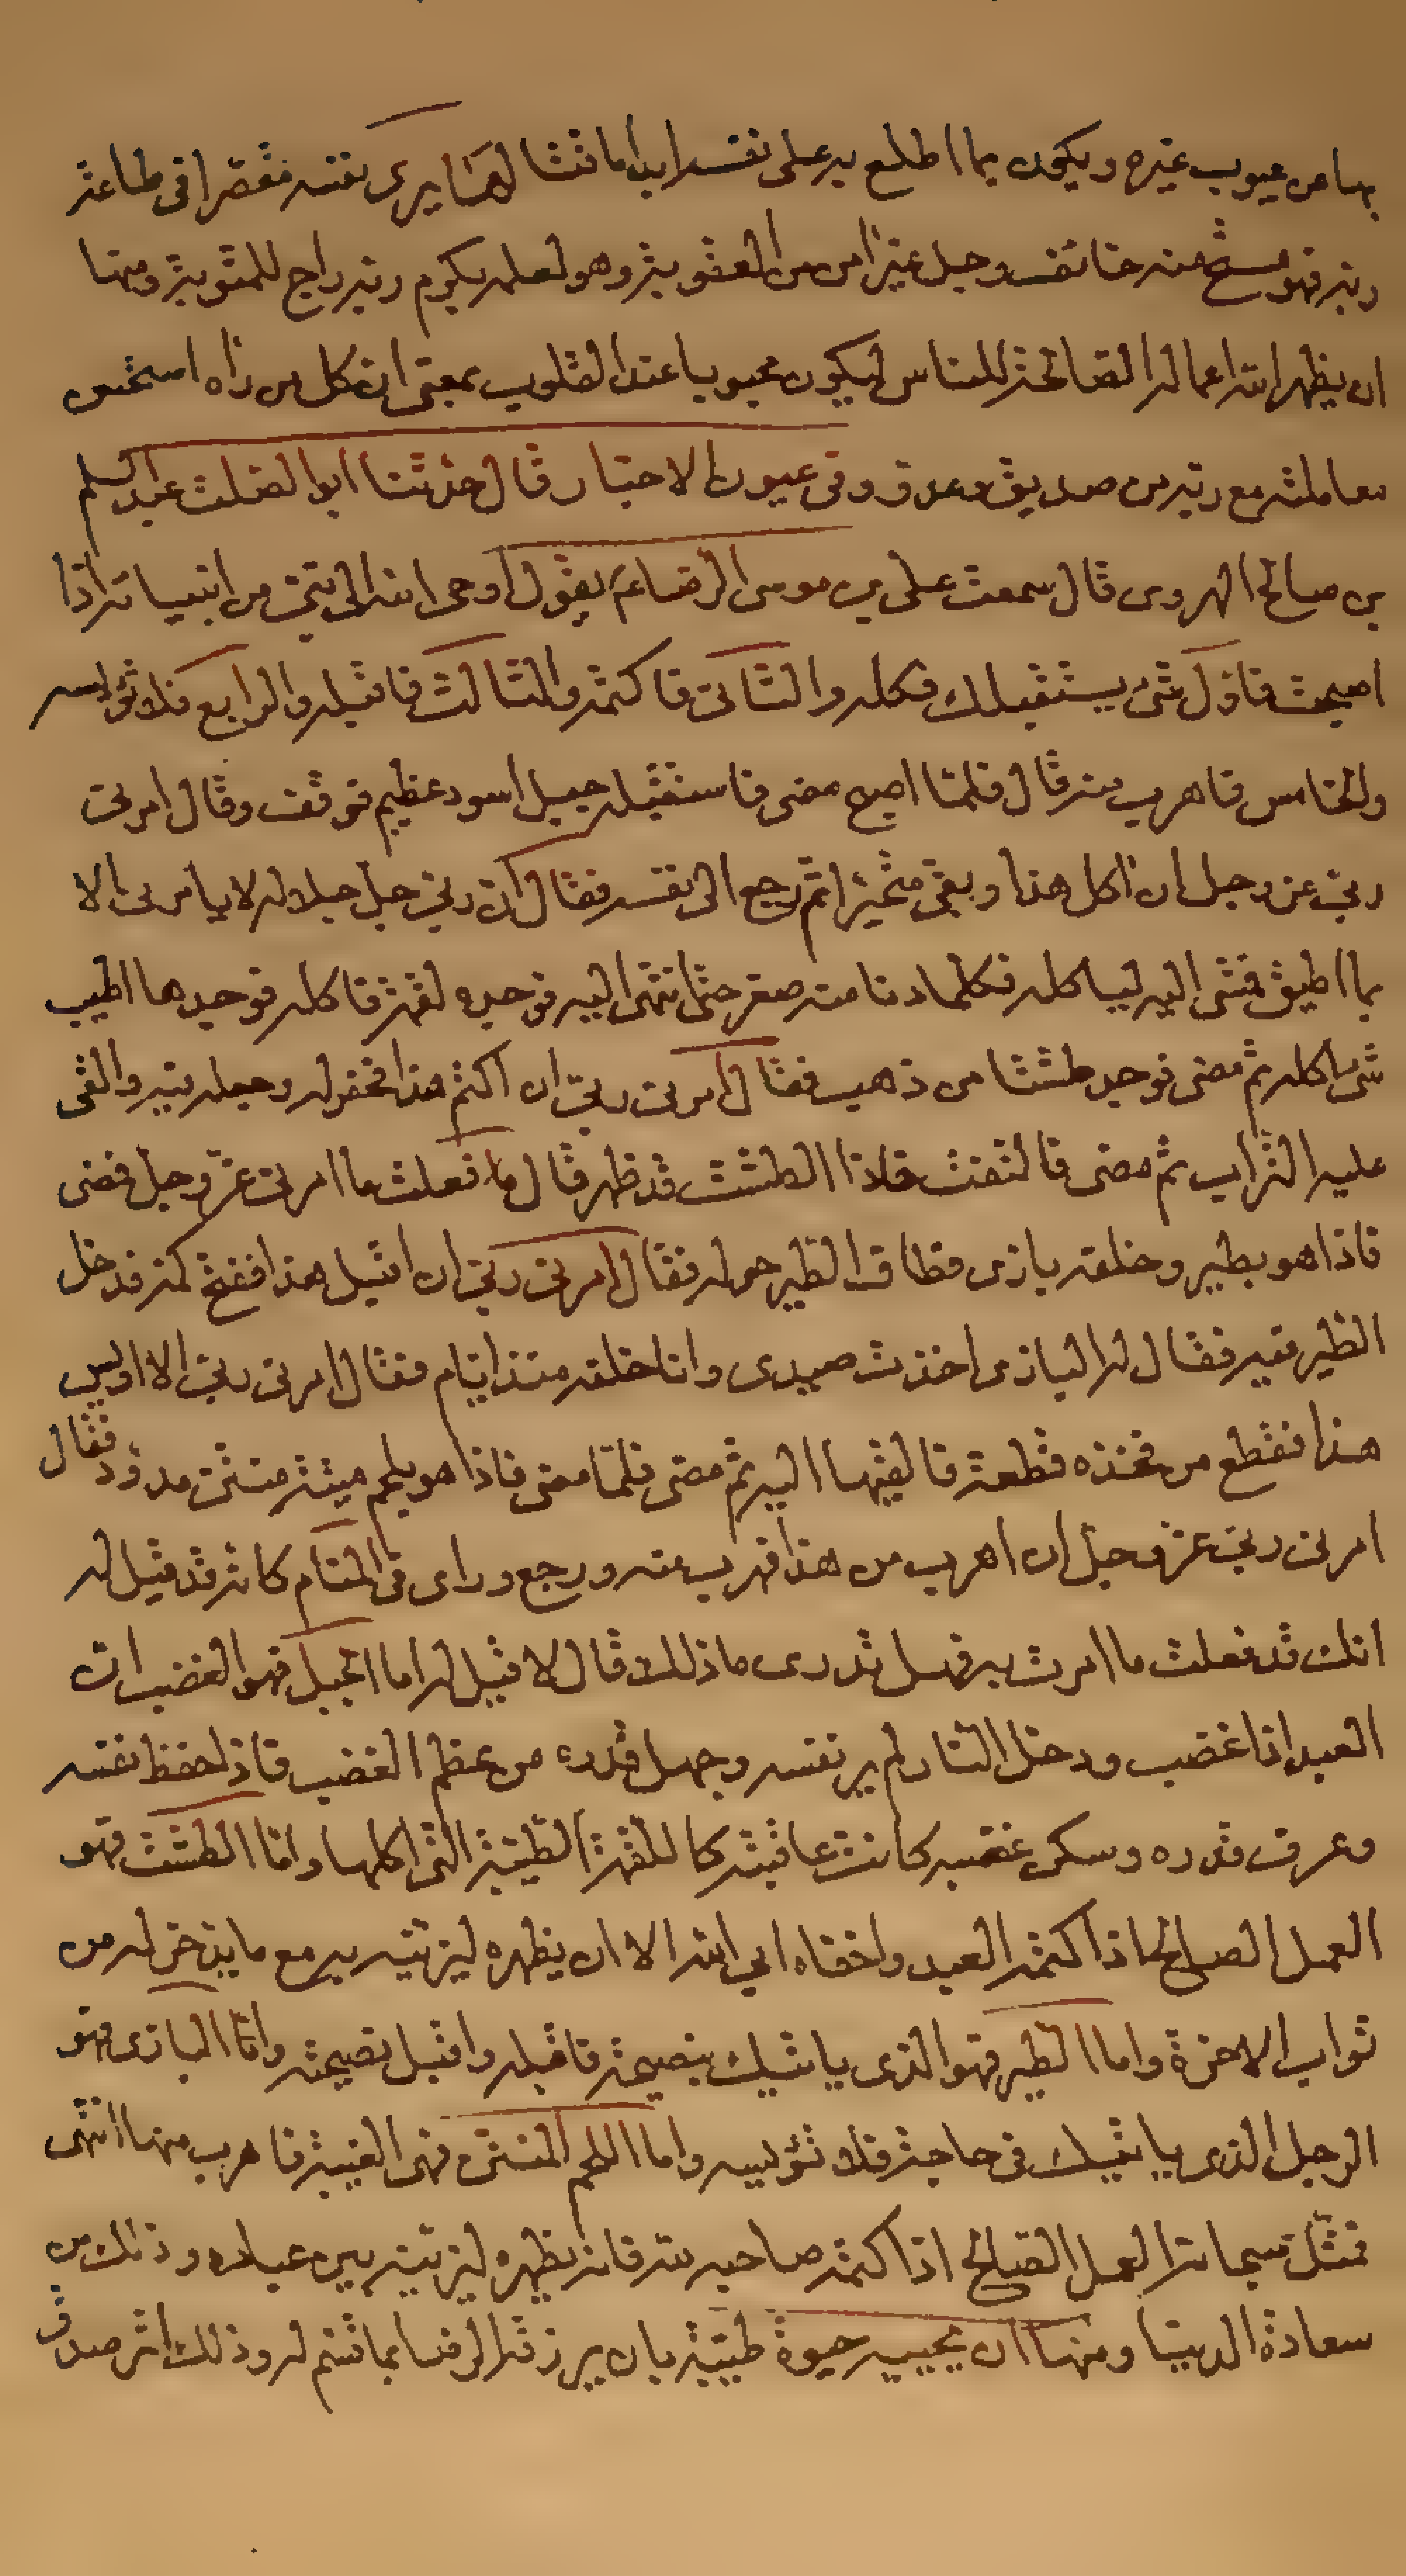 بها عن عيوب غيره ويكون بما اطلع به على نفسه ابدا ماقتا لها يرى نفسه مقصرا فى طاعة
ربه فهو مستح منه خائف وجل غير امن من العقوبة وهو لعلمه بكرم ربه راج للمثوبة ومنها
ان يظهر الله اعماله الصالحة للناس ليكون محبوبا عند القلوب بمعنى ان كل من راه استحسن
معاملته مع ربه من صديق وعدو وفى عيون الاخبار قال حدثنا ابوالصلت عبدالسلم
بن صالح الهروى قال سمعت على بن موسى الرضا عم يقول اوحى الله الى نبى من انبيائه اذا
اصبحت فاول شئ يستقبلك فكله والثانى فاكتمه والثالث فاقبله والرابع فلا تؤيسه
والخامس فاهرب منه قال فلما اصبح مضى فاستقبله جبل اسود عظيم فوقف وقال امرنى
ربى عز وجل ان اكل هذا وبقى متحيرا ثم رجع الى نفسه فقال ان ربى جل جلاله لا يامرنى الا
بما اطيق فمشى اليه لياكله فكلما دنا منه صغر حتى انتهى اليه فوجده لقمة فاكله فوجدها اطيب
شئ اكله ثم مضى فوجد طشتا من ذهب فقال امرنى ربى ان اكتم هذا فحفر له وجعله فيه والقى
عليه التراب ثم مضى فالتفت فاذا الطشت قد ظهر قال ما فعلت ما امرنى عز وجل فمضى
فاذا هو بطير وخلفه بازى فطاف الطير حوله فقال امرنى ربى ان اقبل هذا ففتح كمه فدخل
الطير فيه فقال له البازى اخذت صيدى وانا خلفه منذ ايام فقال امرنى ربى الا اويس
هذا فقطع من فخذه قطعة فالقيها اليه ثم مضى فلما مضى فاذا هو بلحم ميتة منتن مدود فقال
امرنى ربى عز وجل ان اهرب من هذا فهرب منه ورجع وراى فى المنام كانه قد قيل له
انك قد فعلت ما امرت به فهل تدرى ما ذلك قال لا قيل له اما الجبل فهو الغضب ان
العبد اذا غضب ودخل النار لم ير نفسه وجهل قدره من عظم الغضب فاذا حفظ نفسه
وعرف قدره وسكن غضبه كانت عاقبته كاللقمة الطيبة التى اكلها واما الطشت فهو
العمل الصالح اذا كتمه العبد واخفاه ابى الله الا ان يظهره ليزينه به مع ما يدخر له من
ثواب الاخرة واما الطير فهو الذى ياتيك بنصيحة فاقبله واقبل نصيحته واما البازى فهو
الرجل الذى ياتيك فى حاجة فلا تؤيسه واما اللحم المنتن فهى الغيبة فاهرب منها انتهى
فمثل سبحانه العمل الصالح اذا كتمه صاحبه بانه يظهره ليزينه بين عباده وذلك من
سعادة الدنيا ومنها ان يحييه حيوة طيبة بان يرزقه الرضا بما قسم له وذلك اثر صدق